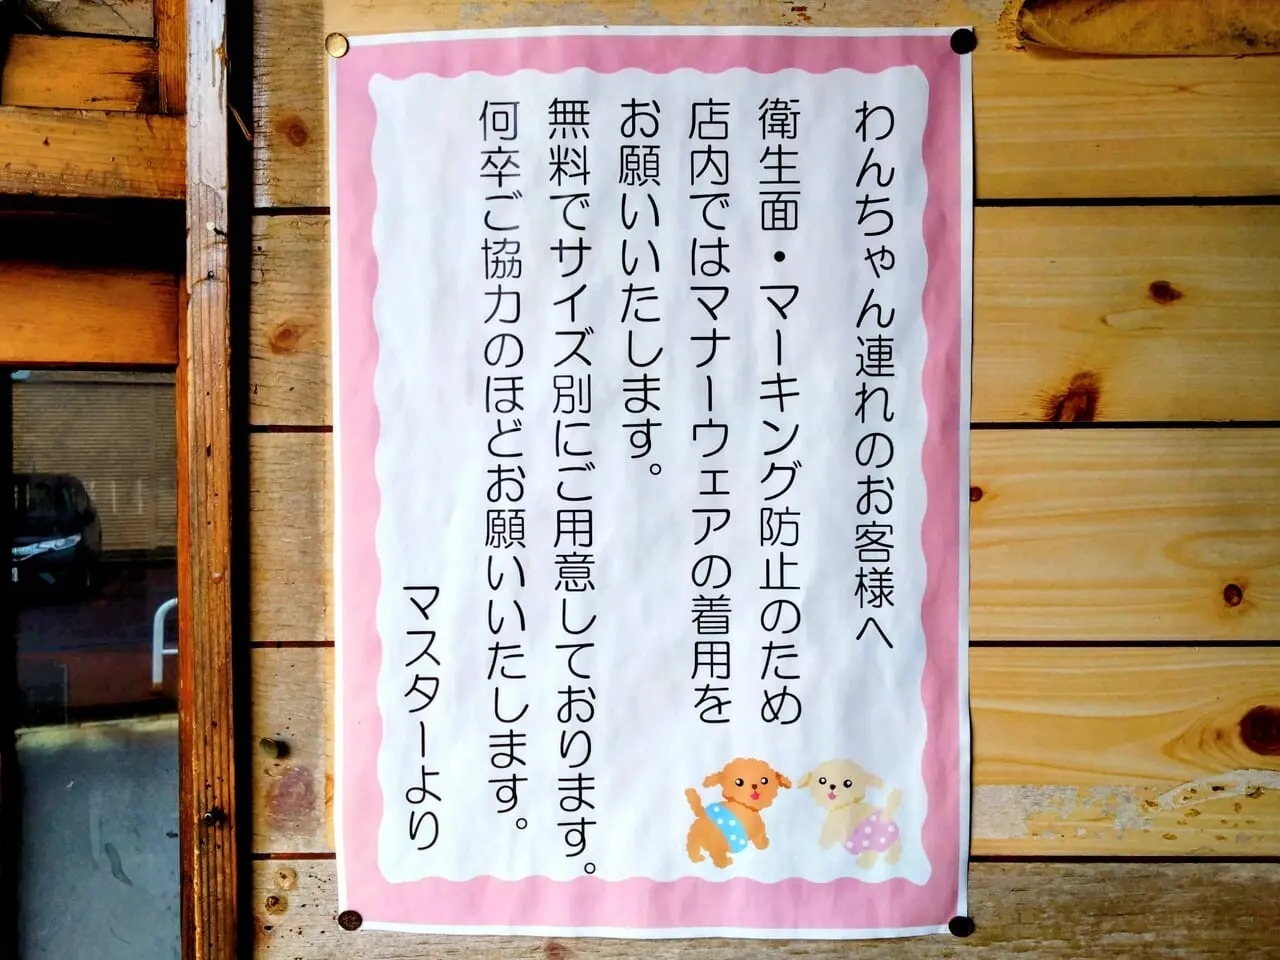 わんちゃん連れのお客様へ
衛生面・マーキング防止のため
店内ではマナーウェアの着用を
お願いいたします。
無料でサイズ別にご用意しております。
何卒ご協力のほどお願いいたします。
マスターより